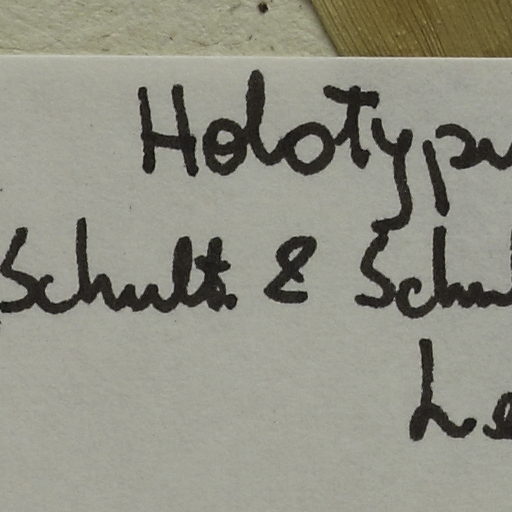 Holotypu
Schult. & Schul
Le